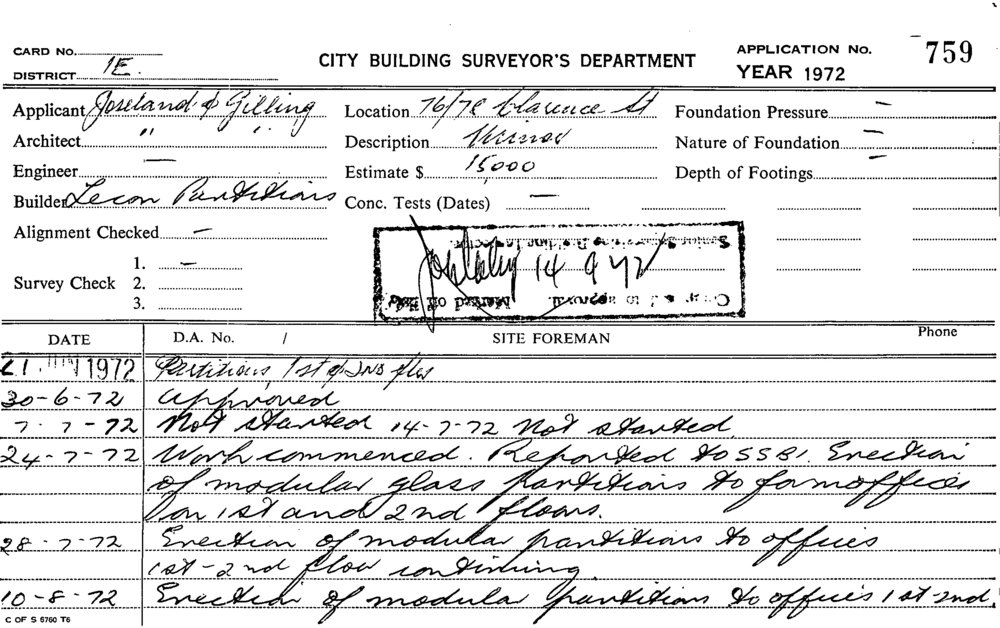 CARD No.
DISTRICT 1E.
CITY BUILDING SURVEYOR'S DEPARTMENT
APPLICATION No. 759
YEAR 1972
Applicant Joseland & Gilling
Location 76/78 Clarence St
Foundation Pressure —
Architect " "
Description Minor
Nature of Foundation —
Engineer —
Estimate $ 15,000
Depth of Footings —
Builder Lecon Partitions
Conc. Tests (Dates) —
Alignment Checked —
Senior Supervising Building Inspector
Survey Check
1. —
2.
3.
14 9 72
to approval. Marked off Plan
DATE
D.A. No. /
SITE FOREMAN
Phone
21 JUN 1972 Partitions, 1st & 2nd flrs
30-6-72 Approved
7-7-72 Not started 14-7-72 Not started.
24-7-72 Work commenced. Reported to SSBI. Erection
of modular glass partitions to form offices
on 1st and 2nd floors.
28-7-72 Erection of modular partitions to offices
1st-2nd floor continuing.
10-8-72 Erection of modular partitions to offices 1st-2nd.
C OF S 6760 T6